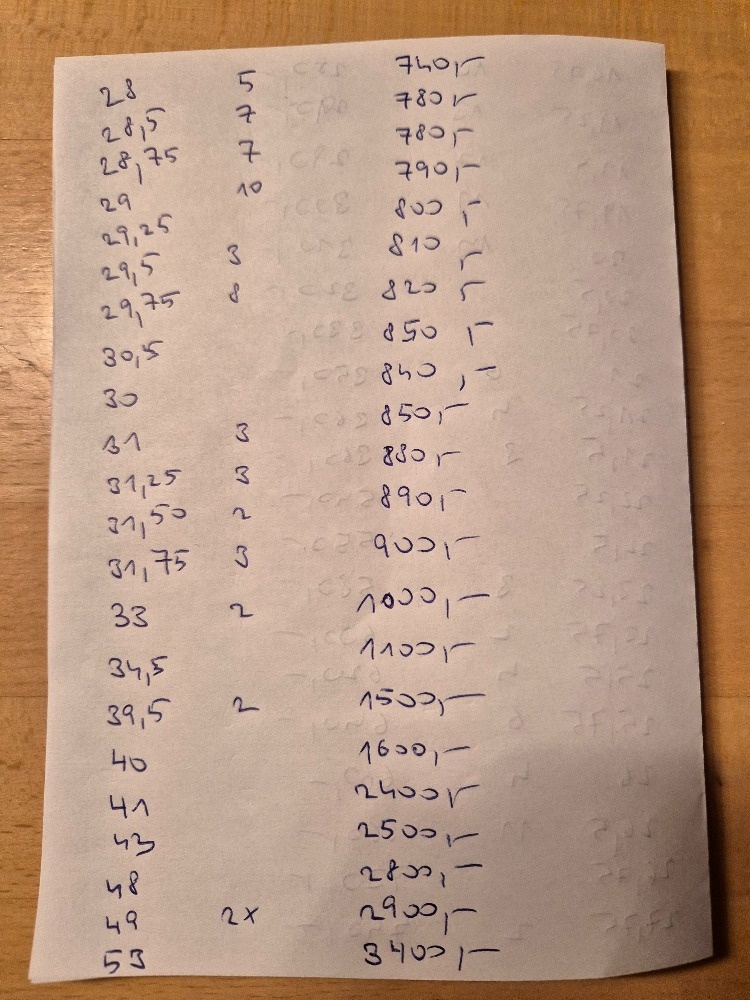 28 5 740,-
28,5 7 780,-
28,75 7 780,-
29 10 790,-
29,25 800,-
29,5 3 810,-
29,75 8 820,-
30,5 850,-
30 840,-
31 3 850,-
31,25 3 880,-
31,50 2 890,-
31,75 3 900,-
33 2 1000,-
34,5 1100,-
39,5 2 1500,-
40 1600,-
41 2400,-
43 2500,-
48 2800,-
49 2x 2900,-
53 3400,-